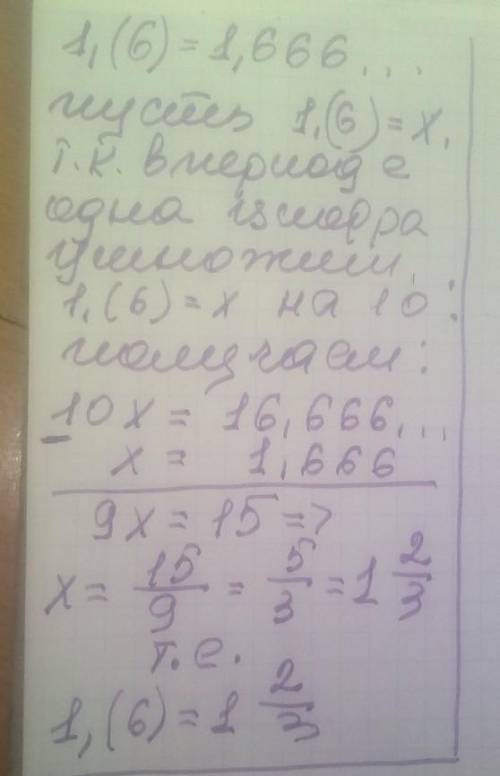 1,(6)=1,666...
пусть 1,(6)=x,
т.к. в периоде
одна цифра
умножим
1,(6)=x на 10:
получаем:
10x = 16,666...
x = 1,666
9x = 15 =>
x = 15/9 = 5/3 = 1 2/3
т.е.
1,(6) = 1 2/3